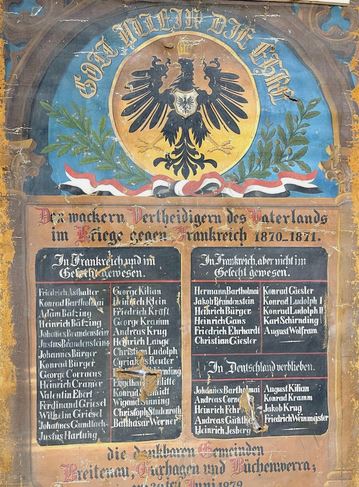 GOTT ALLEIN DIE EHRE
Den wackern Vertheidigern des Vaterlands
im Kriege gegen Frankreich 1870-1871.
In Frankreich und im
Gefecht gewesen.
Friedrich Asthalter
Konrad Barthelmai
Adam Bätzing
Heinrich Bätzing
Johannes Brandenstein
Justus Brandenstein
Johannes Bürger
Konrad Bürger
George Corneus
Heinrich Cramer
Valentin Ebert
Ferdinand Griesel
Wilhelm Griesel
Johannes Gundlach
Justus Hartung
George Kilian
Heinrich Klein
Friedrich Kraft
George Kramm
Andreas Krug
Heinrich Lange
Christian Ludolph
Cyriakus Reuter
Konrad
Wigand
Christoph
Balthasar Werner
In Frankreich, aber nicht im
Gefecht gewesen.
Hermann Barthelmai
Jakob Brandenstein
Heinrich Bürger
Heinrich Gans
Friedrich Ehrhardt
Christian Giesler
Konrad Giesler
Konrad Ludolph I
Konrad Ludolph II
Karl Schirnding
August Wolfram
In Deutschland verblieben.
Johannes Barthelmai
Andreas
Heinrich Fehr
Andreas
Heinrich Jesberg
August Kilian
Konrad Kramm
Jakob Krug
Friedrich Weinmeister
die dankbaren Gemeinden
Breitenau, Guxhagen und Büchenwerra;
Juni 1872